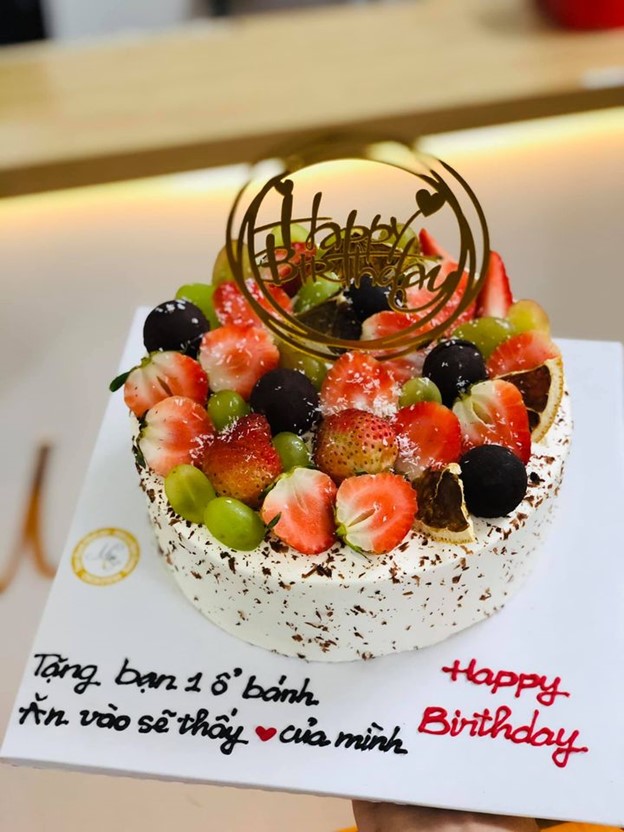 Happy
Birthday
Tặng bạn 1 ổ bánh
Ăn vào sẽ thấy ❤ của mình
Happy
Birthday